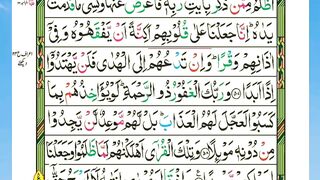 اَظۡلَمُ مِمَّنۡ ذُكِّرَ بِاٰيٰتِ رَبِّهٖ فَاَعۡرَضَ عَنۡهَا وَنَسِىَ مَا قَدَّمَتۡ
يَدٰهُ‌ ؕ اِنَّا جَعَلۡنَا عَلٰى قُلُوۡبِهِمۡ اَكِنَّةً اَنۡ يَّفۡقَهُوۡهُ وَفِىۡۤ
اٰذَانِهِمۡ وَقۡرًا‌ ؕ وَاِنۡ تَدۡعُهُمۡ اِلَى الۡهُدٰى فَلَنۡ يَّهۡتَدُوۡۤا
اِذًا اَبَدًا‏ ﴿۵۷﴾ وَرَبُّكَ الۡغَفُوۡرُ ذُو الرَّحۡمَةِ‌ ؕ لَوۡ يُؤَاخِذُهُمۡ بِمَا
كَسَبُوۡا لَعَجَّلَ لَهُمُ الۡعَذَابَ‌ ؕ بَلْ لَّهُمۡ مَّوۡعِدٌ لَّنۡ يَّجِدُوۡا
مِنۡ دُوۡنِهٖ مَوۡٮِٕلًا‏ ﴿۵۸﴾ وَتِلۡكَ الۡقُرٰٓى اَهۡلَكۡنٰهُمۡ لَمَّا ظَلَمُوۡا وَجَعَلۡنَا